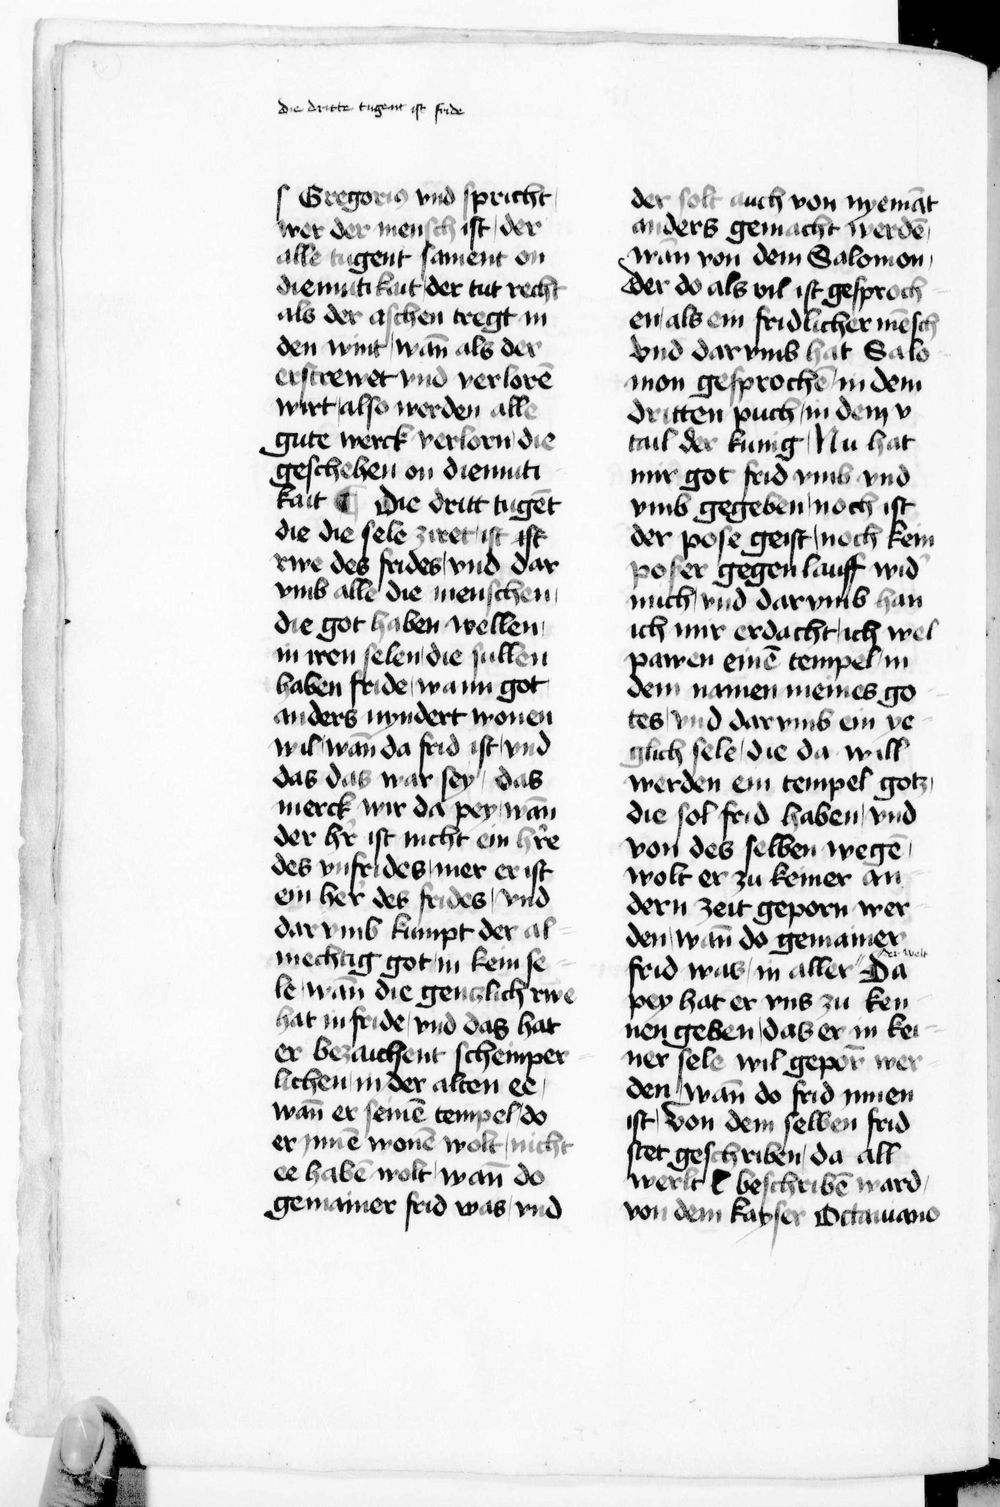 die dritte tugent ist fride
s Gregorius vnd spricht /
wer der mensch ist / der
alle tugent sament on
diemutikait / der tut recht
als der aschen tregt in
den wint / wañ als der
erstrewet vnd verlorē
wirt / also werden alle
gute werck verlorn / die
geschehen on diemuti-
kait ¶ Die dritt tugēt
die die sele ziret / ist ist
rwe des frides / vnd dar
vmb alle die menschen /
die got haben wellen /
in iren selen / die sullen
haben fride / wann got
anders nyndert wonen
wil / wañ da frid ist / vnd
das das war sey / das
merck wir da pey / wañ
der hr̄ ist nicht ein hr̄re
des vnfrides / mer er ist
ein her̄ des frides / vnd
dar vmb kumpt der al-
mechtig got / in kein se-
le / wañ die gentzlich rwe
hat in fride / vnd das hat
er bezaichent schimper-
lichen / in der alten ee /
wañ er seinē tempel / do
er jnnē wonē wolt / nicht
ee habē wolt / wañ do
gemainer frid was / vnd
der solt auch von nyemāt
anders gemacht werdē /
wañ von dem Salomon /
der do als vil ist gesproch-
en / als ein fridlicher mēsch
vnd dar vmb hat Salo-
mon gesprochē / in dem
dritten puch / in dem v
tail der kunig / Nu hat
mir got frid vmb vnd
vmb gegeben / noch ist
der pose geist / noch kein
poser gegenlauff wid'
mich / vnd dar vmb han
ich mir erdacht / ich wel
pawen einē tempel / in
dem namen meines go-
tes / vnd dar vmb ein ye-
glich sele / die da will
werden ein tempel gotz /
die sol frid haben / vnd
von des selben wegē /
wolt er zu keiner an-
dern zeit geporn wer-
den / wañ do gemainer
frid was / in aller der welt Da
pey hat er vns zu ken-
nen geben / das er in kei-
ner sele wil gepor̄ wer-
den / wañ do frid jnnen
ist / Von dem selben frid
stet geschriben / da all
werlt beschribē ward /
von dem kayser Octauiano